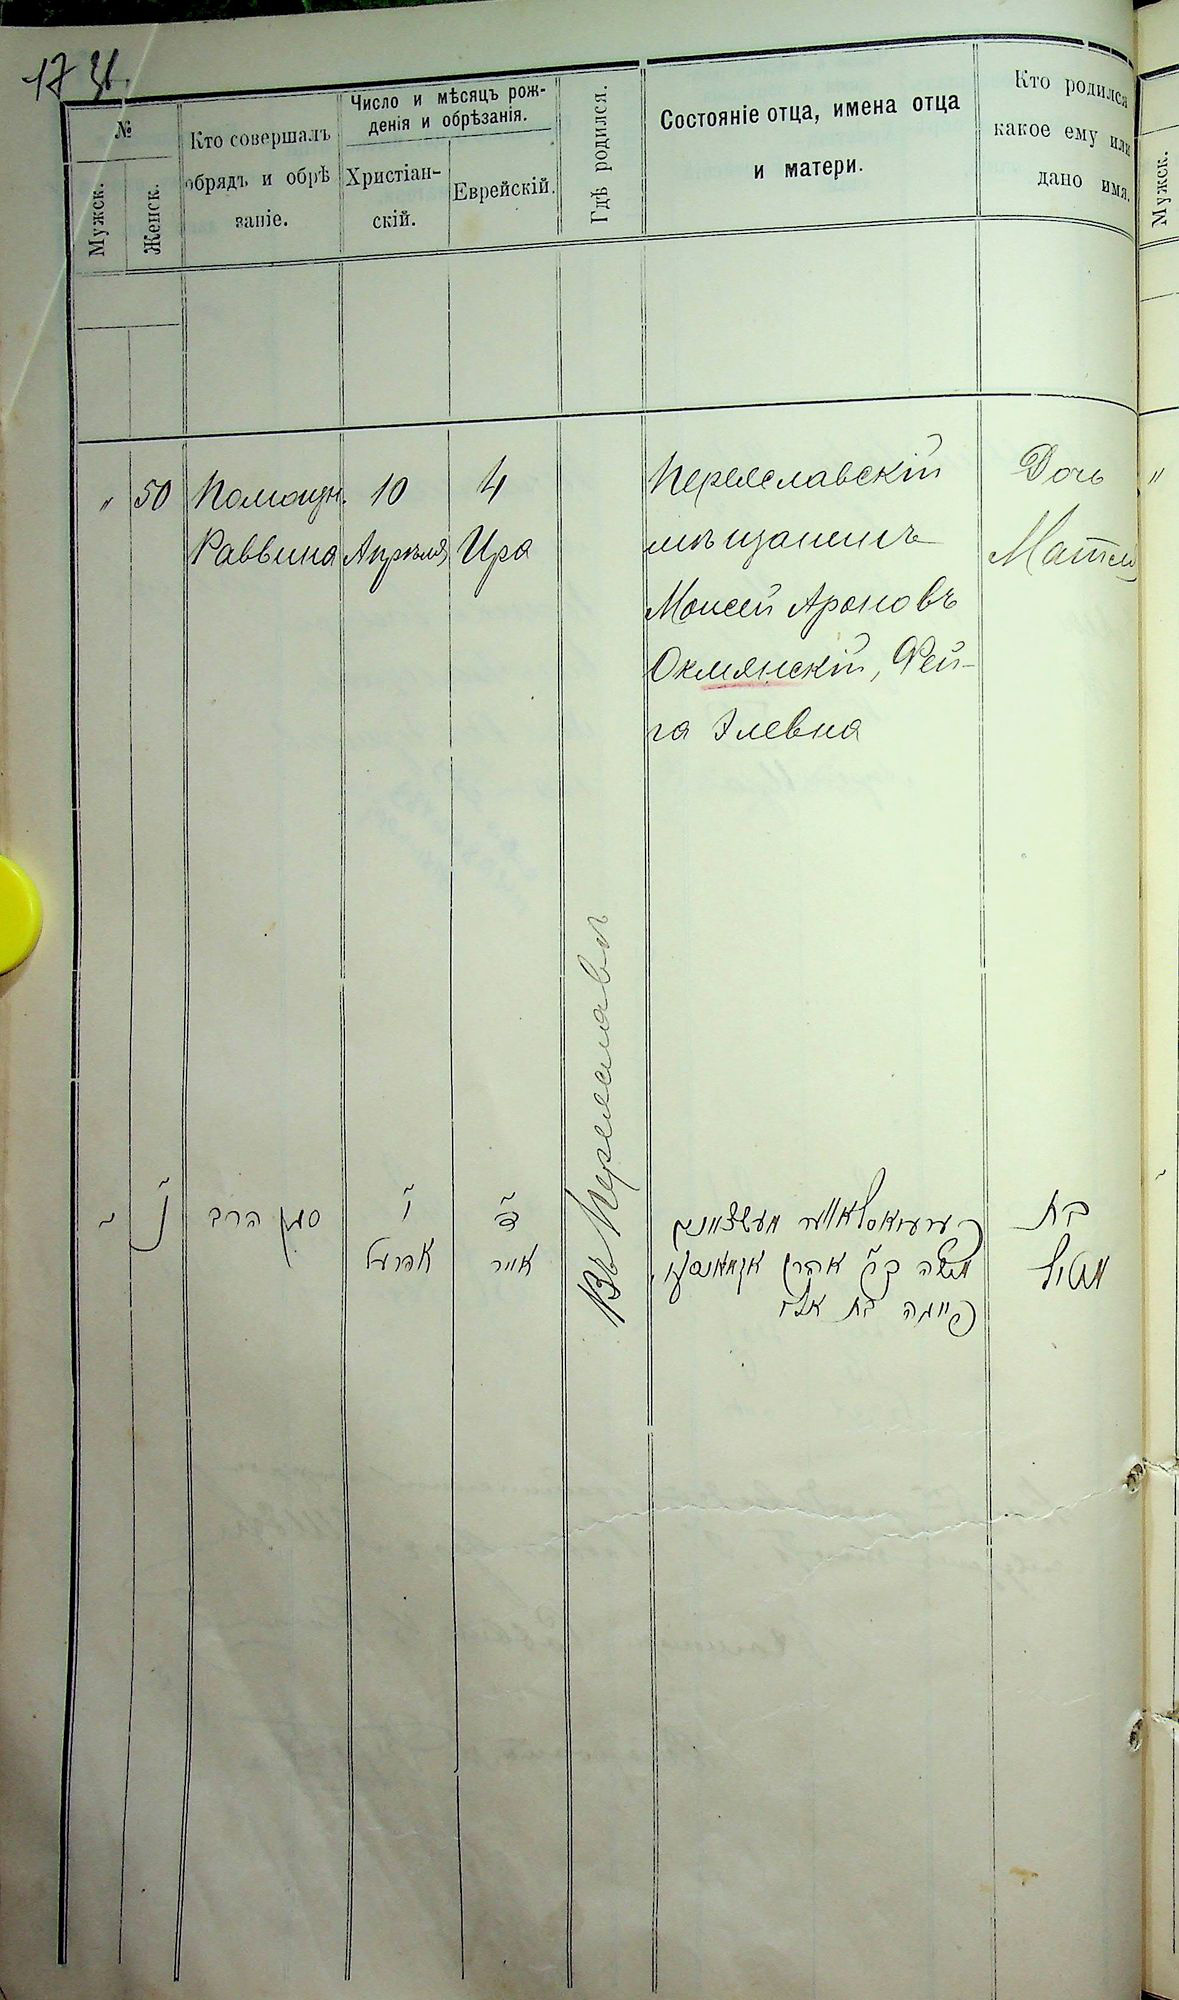 №
Мужск.
Женск.
Кто совершалъ
обрядъ и обрѣ
заніе.
Число и мѣсяцъ рож-
денія и обрѣзанія.
Христіан-
скій.
Еврейскій.
Гдѣ родился.
Состояніе отца, имена отца
и матери.
Кто родился
какое ему или
дано имя.
Мужск.
" 50
Помощн.
Раввина
10
Апрѣля
4
Ира
Въ Переяславѣ
Переяславскій
мѣщанинъ
Моисей Ароновъ
Окмянскій, Фей-
га Элевна
Дочь
Матля
"
נ
סגן הרב
י
אפרעל
ד
אייר
משה ב״ר אהרן
פייגה בת
בת
מטיל